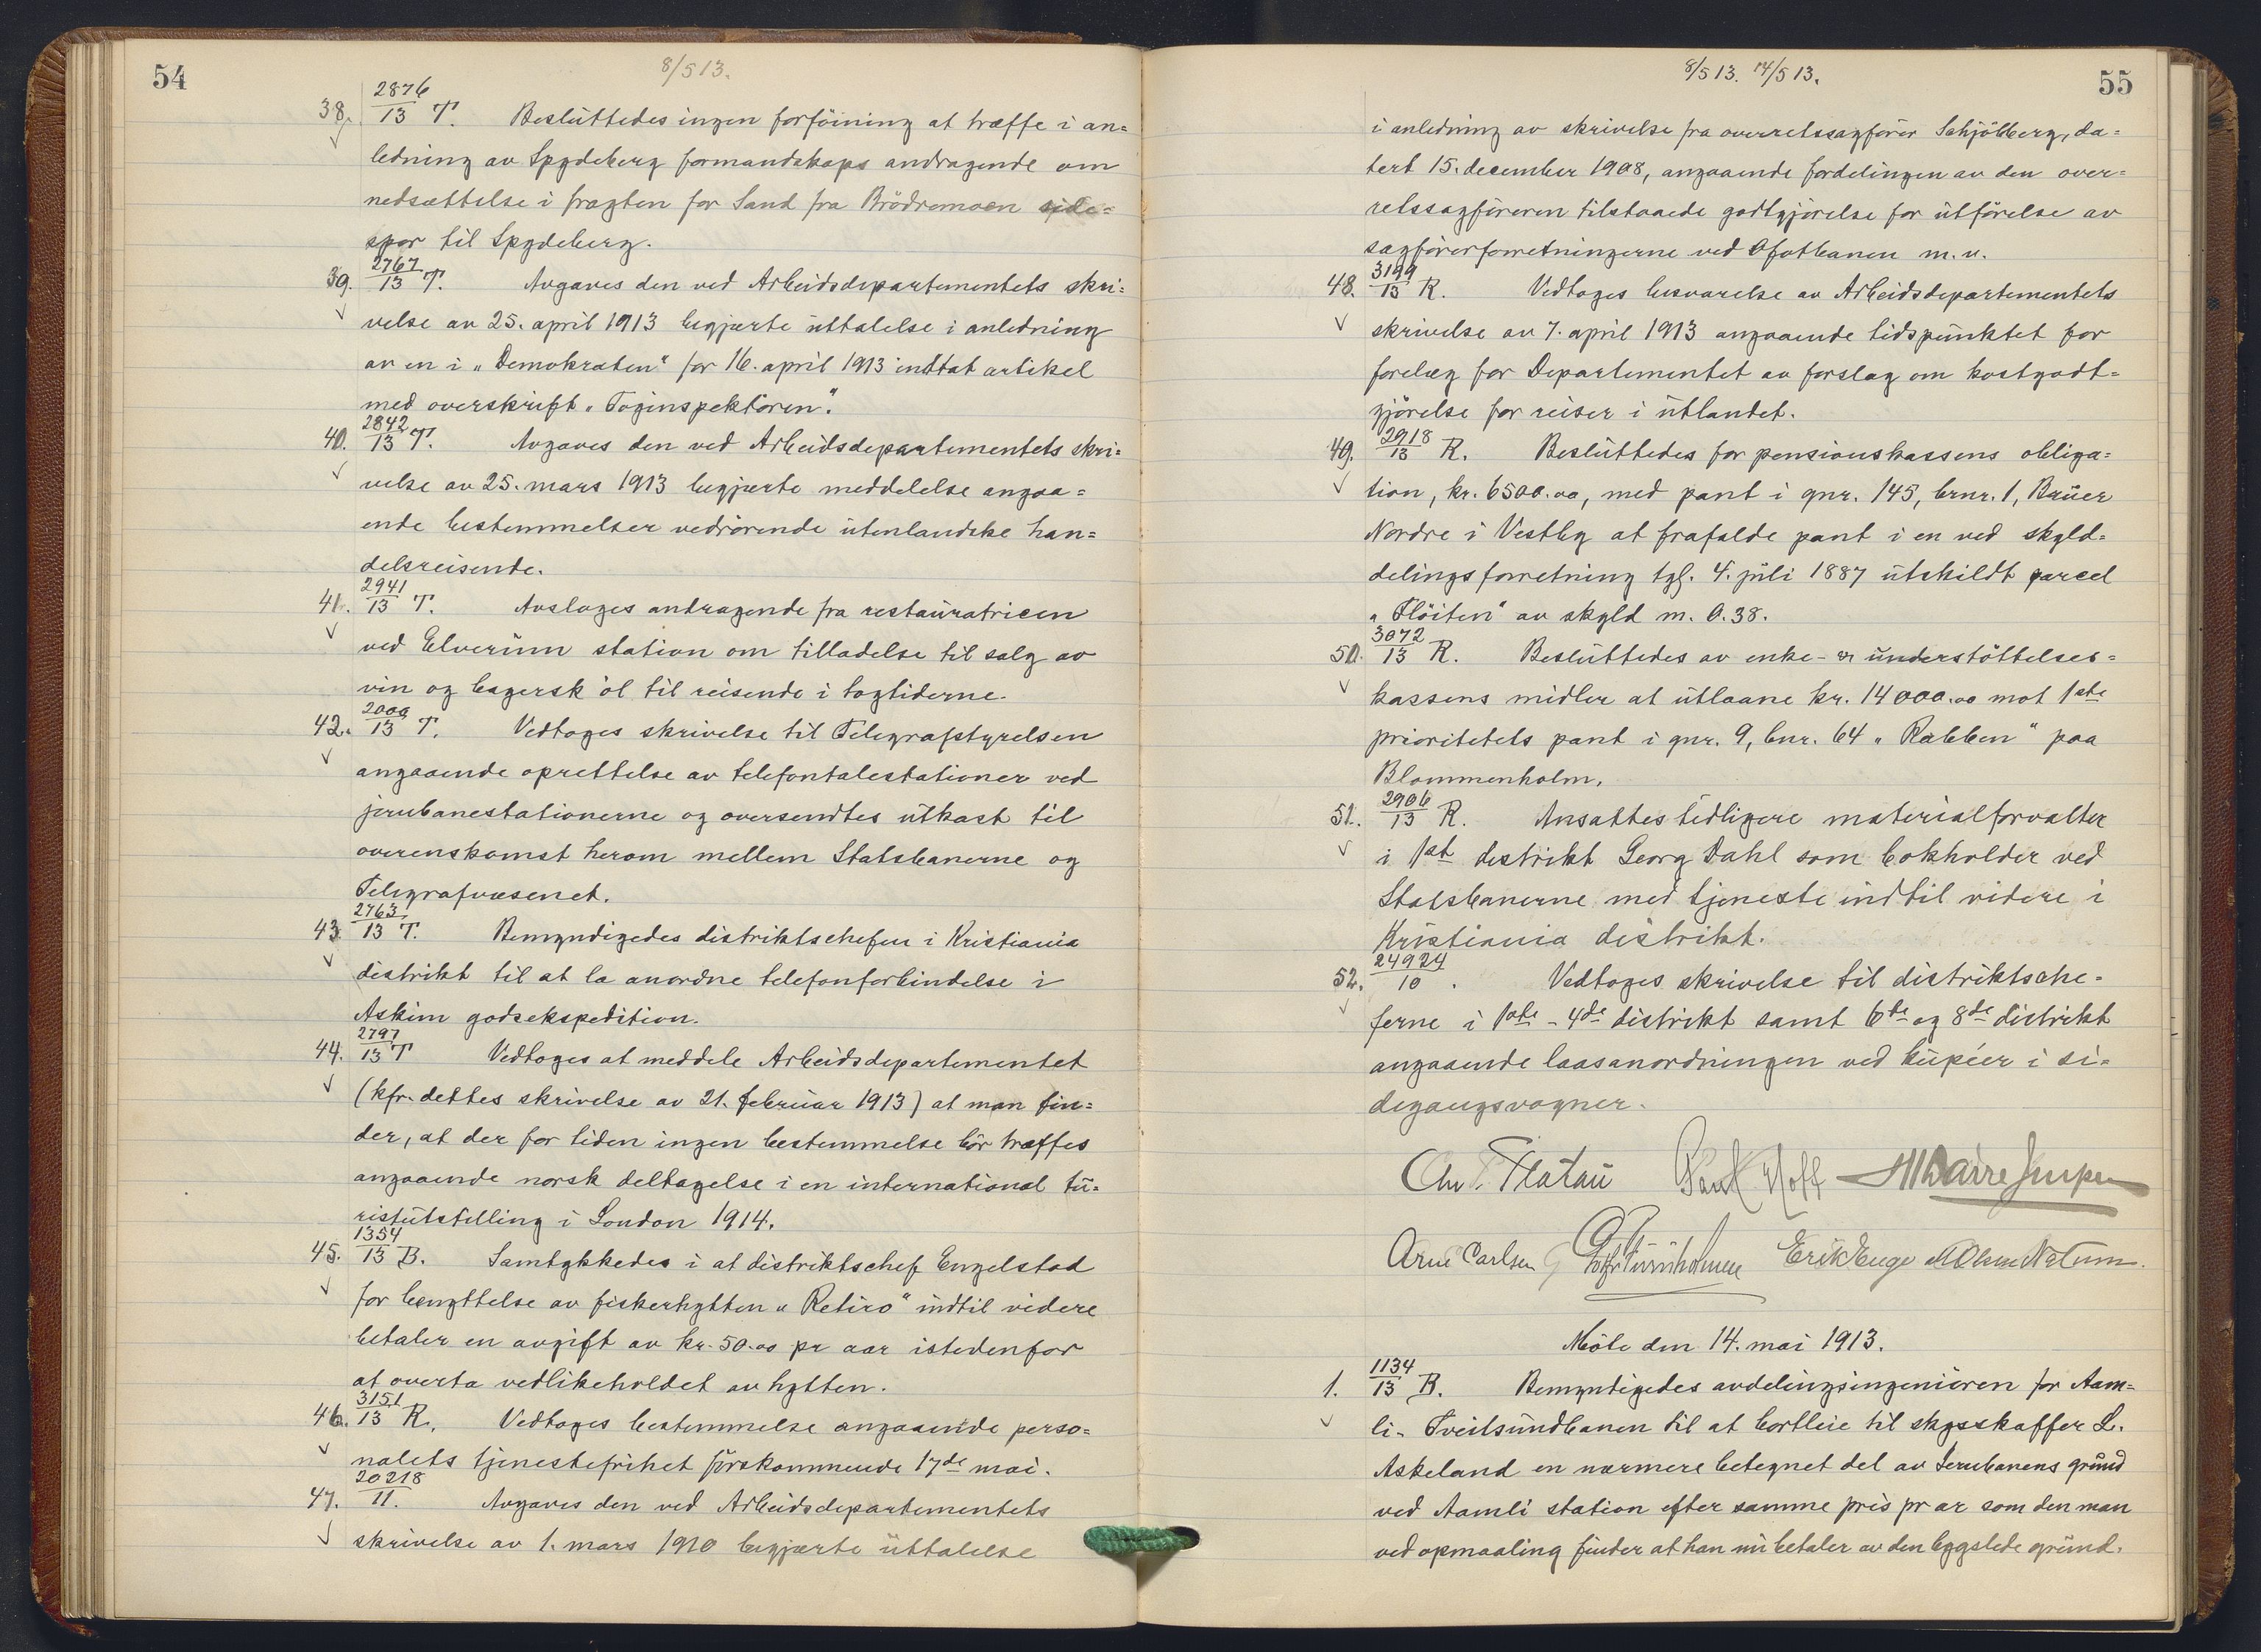 54
8/5 13.
2876
38. 13 T. Besluttedes ingen forföining at træffe i an=
ledning av Spydeberg formandskaps andragende om
nedsættelse i fragten for Sand fra Brödremoen side=
spor til Spydeberg.
2767
39. 13 T. Avgaves den ved Arbeidsdepartementets skri=
velse av 25. april 1913 begjærte uttalelse i anledning
av en i "Demokraten" for 16. april 1913 indtat artikel
med overskrift "Toginspektören".
2842
40. 13 T. Avgaves den ved Arbeidsdepartementets skri=
velse av 25. mars 1913 begjærte meddelelse angaa=
ende bestemmelser vedrörende utenlandske han=
delsreisende.
2941
41. 13 T. Avsloges andragende fra restauratricen
ved Elverum station om tilladelse til salg av
vin og bayersk öl til reisende i togtiderne.
2000
42. 13 T. Vedtoges skrivelse til Telegrafstyrelsen
angaaende oprettelse av telefontalestationer ved
jernbanestationerne og oversendtes utkast til
overenskomst herom mellem Statsbanerne og
Telegrafvæsenet.
2763
43. 13 T. Bemyndigedes distriktschefen i Kristiania
distrikt til at la anordne telefonforbindelse i
Askim godsekspedition.
2797
44. 13 T Vedtoges at meddele Arbeidsdepartementet
(kfr. dettes skrivelse av 21. februar 1913) at man fin=
der, at der for tiden ingen bestemmelse bör træffes
angaaende norsk deltagelse i en international tu=
ristutstilling i London 1914.
1354
45. 13 B. Samtykkedes i at distriktschef Engelstad
for benyttelse av fiskerhytten "Retiro" indtil videre
betaler en avgift av kr. 50.00 pr aar istedenfor
at overta vedlikeholdet av hytten.
3151
46. 13 R. Vedtoges bestemmelse angaaende perso=
nalets tjenestefrihet förskommende 17de mai.
20218
47. 11. Avgaves den ved Arbeidsdepartementets
skrivelse av 1. mars 1910 begjærte uttalelse
8/5 13. 14/5 13.
55
i anledning av skrivelse fra overretssagförer Schjölberg, da=
tert 15. december 1908, angaaende fordelingen av den over=
retssagföreren tilstaaede godtgjörelse for utförelse av
sagförerforretningerne ved Ofotbanen m.v.
3199
48. 13 R. Vedtoges besvarelse av Arbeidsdepartementets
skrivelse av 7. april 1913 angaaende tidspunktet for
forelæg for Departementet av forslag om kostgodt=
gjörelse for reiser i utlandet.
2918
49. 13 R. Besluttedes for pensionskassens obliga=
tion, kr. 6500.00, med pant i gnr. 145, brnr. 1, Bruer
Nordre i Vestby at frafalde pant i en ved skyld=
delingsforretning tgl. 4. juli 1887 utskildt parcel
"Flöiten" av skyld m. 0.38.
3072
50. 13 R. Besluttedes av enke- og understöttelses=
kassens midler at utlaane kr. 14000.00 mot 1ste
prioritets pant i gnr. 9, bnr. 64 "Rabben" paa
Blommenholm.
2906
51. 13 R. Ansattes tidligere materialforvalter
i 1st distrikt Georg Dahl som bokholder ved
Statsbanerne med tjeneste indtil videre i
Kristiania distrikt.
24924
52. 10. Vedtoges skrivelse til distriktsche=
ferne i 1ste - 4de distrikt samt 6te og 8de distrikt
angaaende laasanordningen ved kupéer i si=
degangsvogner.
Chr. Platou Paul Hoff
Arne Carlsen Erik Enge
Möte den 14. mai 1913.
1134
1. 13 B. Bemyndigedes avdelingsingeniören for Aam=
li- Tveitsundbanen til at bortleie til skysskaffer L.
Askeland en nærmere betegnet del av Jernbanens grund
ved Aamli station efter samme pris pr ar som den man
ved opmaaling finder at han nu betaler av den byggslede grund.